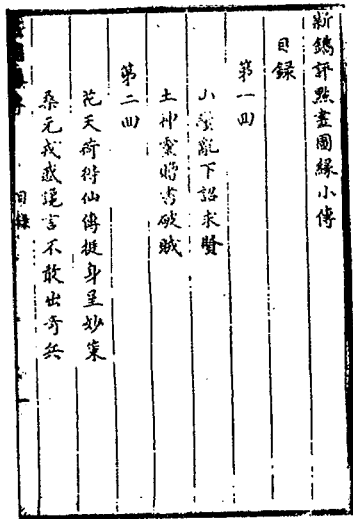 新鐫評點畫圖緣小傳
目錄
第一回
山蠻亂下詔求賢
土神靈贈書破賊
第二回
花天荷得仙傳挺身呈妙策
桑元戎惑讒言不敢出奇兵
目錄
一